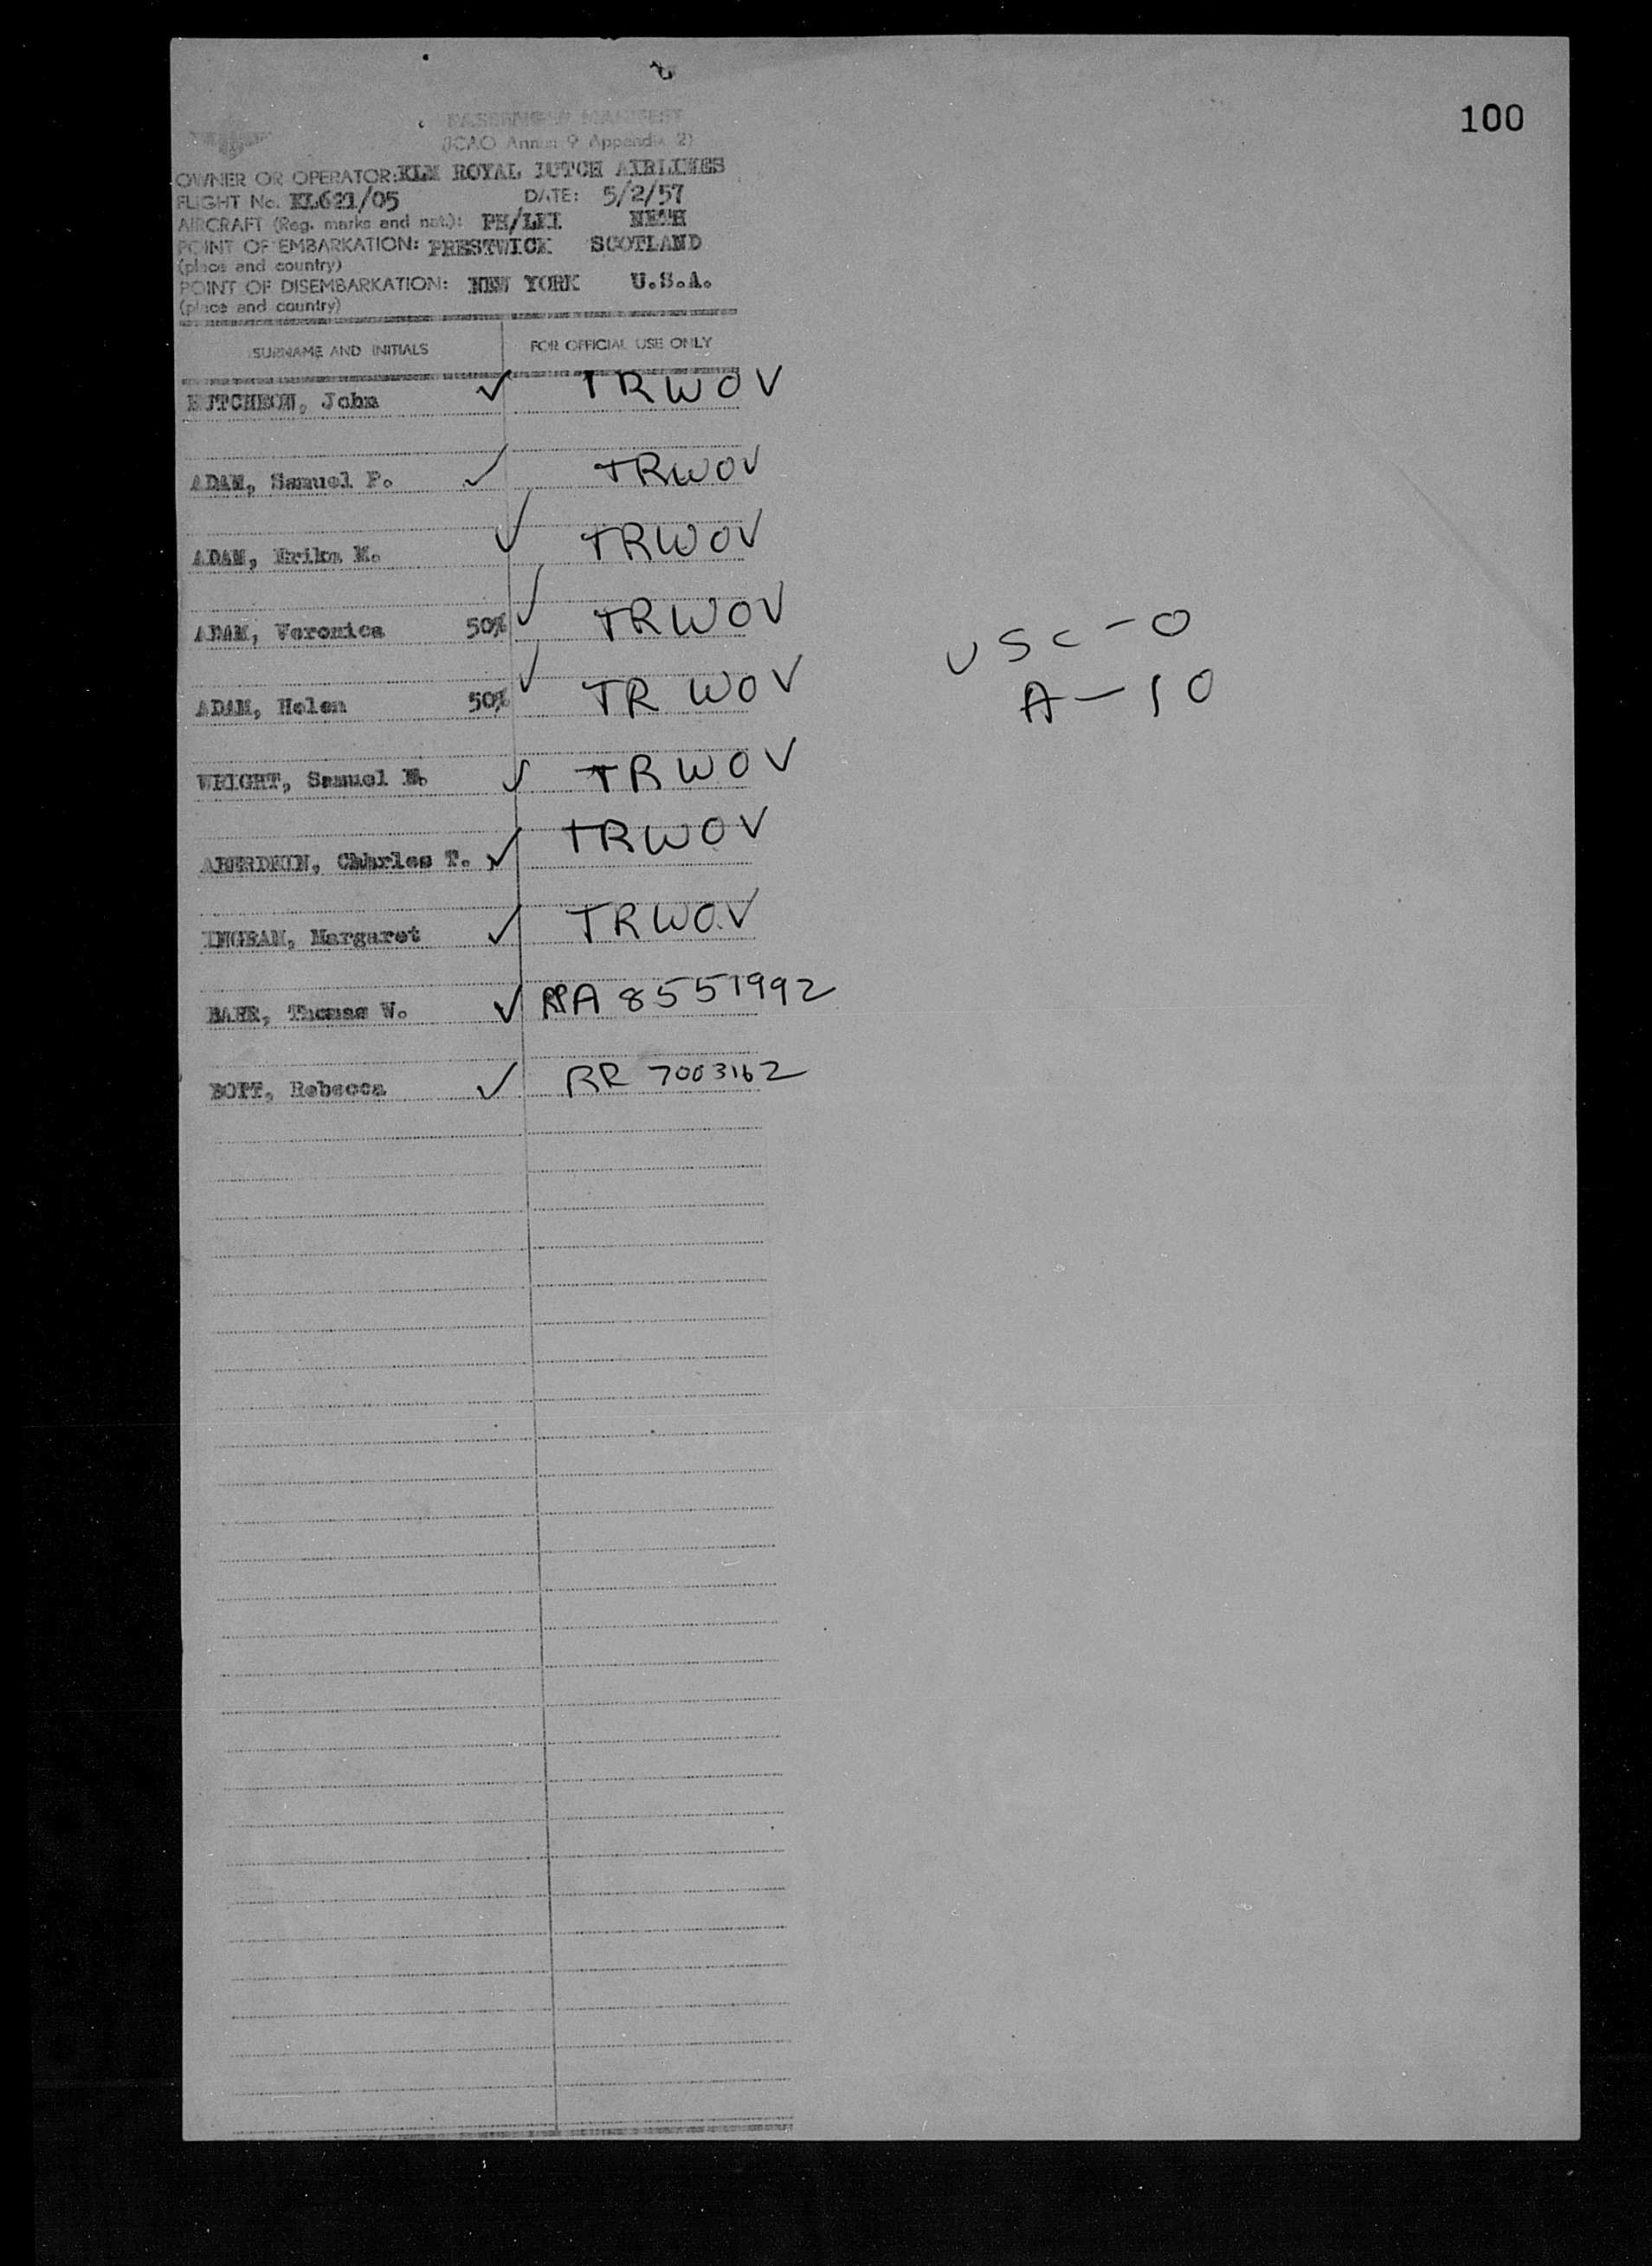 100
PASSENGER MANIFEST
(ICAO Annex 9 Appendix 2)
OWNER OR OPERATOR: KLM ROYAL DUTCH AIRLINES
FLIGHT No. KL621/05 DATE: 5/2/57
AIRCRAFT (Reg. marks and nat.): PH/LKI NETH
POINT OF EMBARKATION: PRESTWICK SCOTLAND
(place and country)
POINT OF DISEMBARKATION: NEW YORK U.S.A.
(place and country)
SURNAME AND INITIALS FOR OFFICIAL USE ONLY
HUTCHEON, John ✓ TRWOV
ADAM, Samuel P. ✓ TRWOV
ADAM, Erika M. ✓ TRWOV
ADAM, Veronica 50% ✓ TRWOV
ADAM, Helen 50% ✓ TRWOV
WRIGHT, Samuel ✓ TRWOV
ABERDEIN, Charles T. ✓ TRWOV
INGRAM, Margaret ✓ TRWOV
BARR, Thomas W. ✓ A 8551992
BOTT, Rebecca ✓ RR 7003162
USC - 0
A - 10